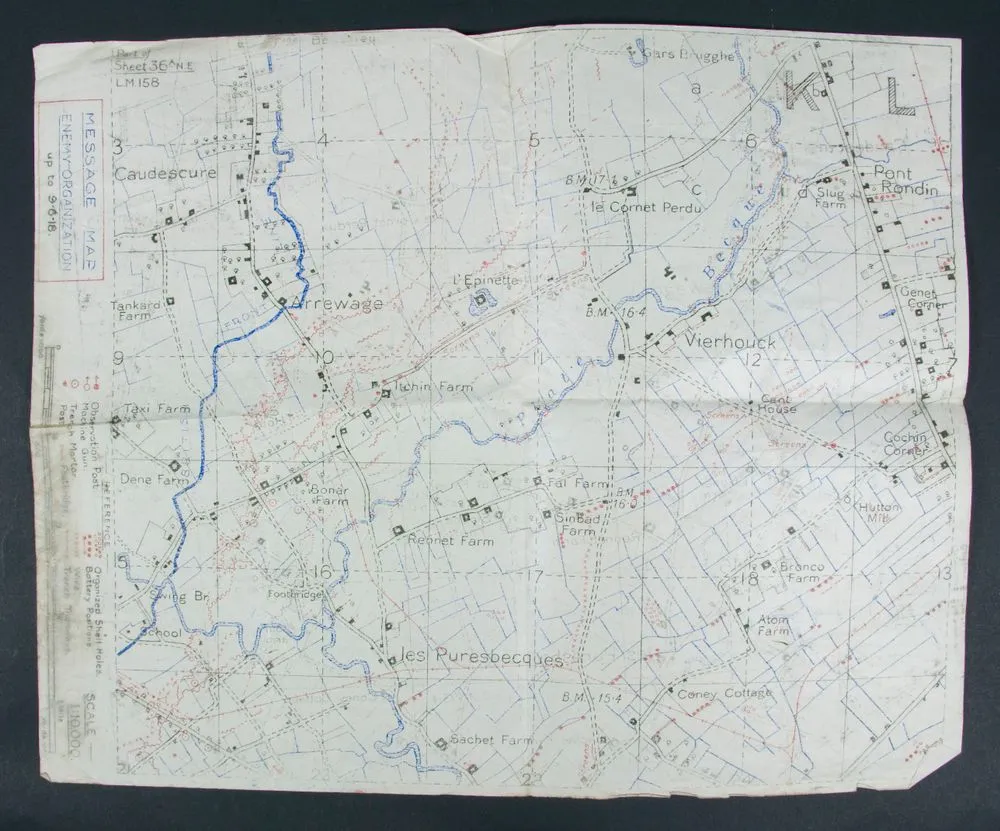 Part of
Sheet 36A N.E
LM.158
MESSAGE MAP
ENEMY ORGANIZATION
up to 9-6-18.
REFERENCE
Observation Post
Machine Gun
Trench Mortar
Organized Shell Holes.
Battery Positions
SCALE
Gars Brugghe
a
b
K
L
3
4
5
6
Caudescure
B.M. 17·1
c
d
le Cornet Perdu
Slug
Farm
Pont
Rondin
Becque
L'Epinette
Tankard
Farm
Arrewage
FRONT
B.M. 16·4
Genet
Corner
Vierhouck
9
10
11
12
7
Itchin Farm
Plate
Cant
House
Taxi Farm
Cochin
Corner
Dene Farm
Bonar
Farm
Fal Farm
B.M.
16·0
Sinbad
Farm
Hutton
Mill
Rennet Farm
15
16
17
18
13
Bronco
Farm
Footbridge
Atom
Farm
School
les Puresbecques
B.M. 15·4
Coney Cottage
Sachet Farm